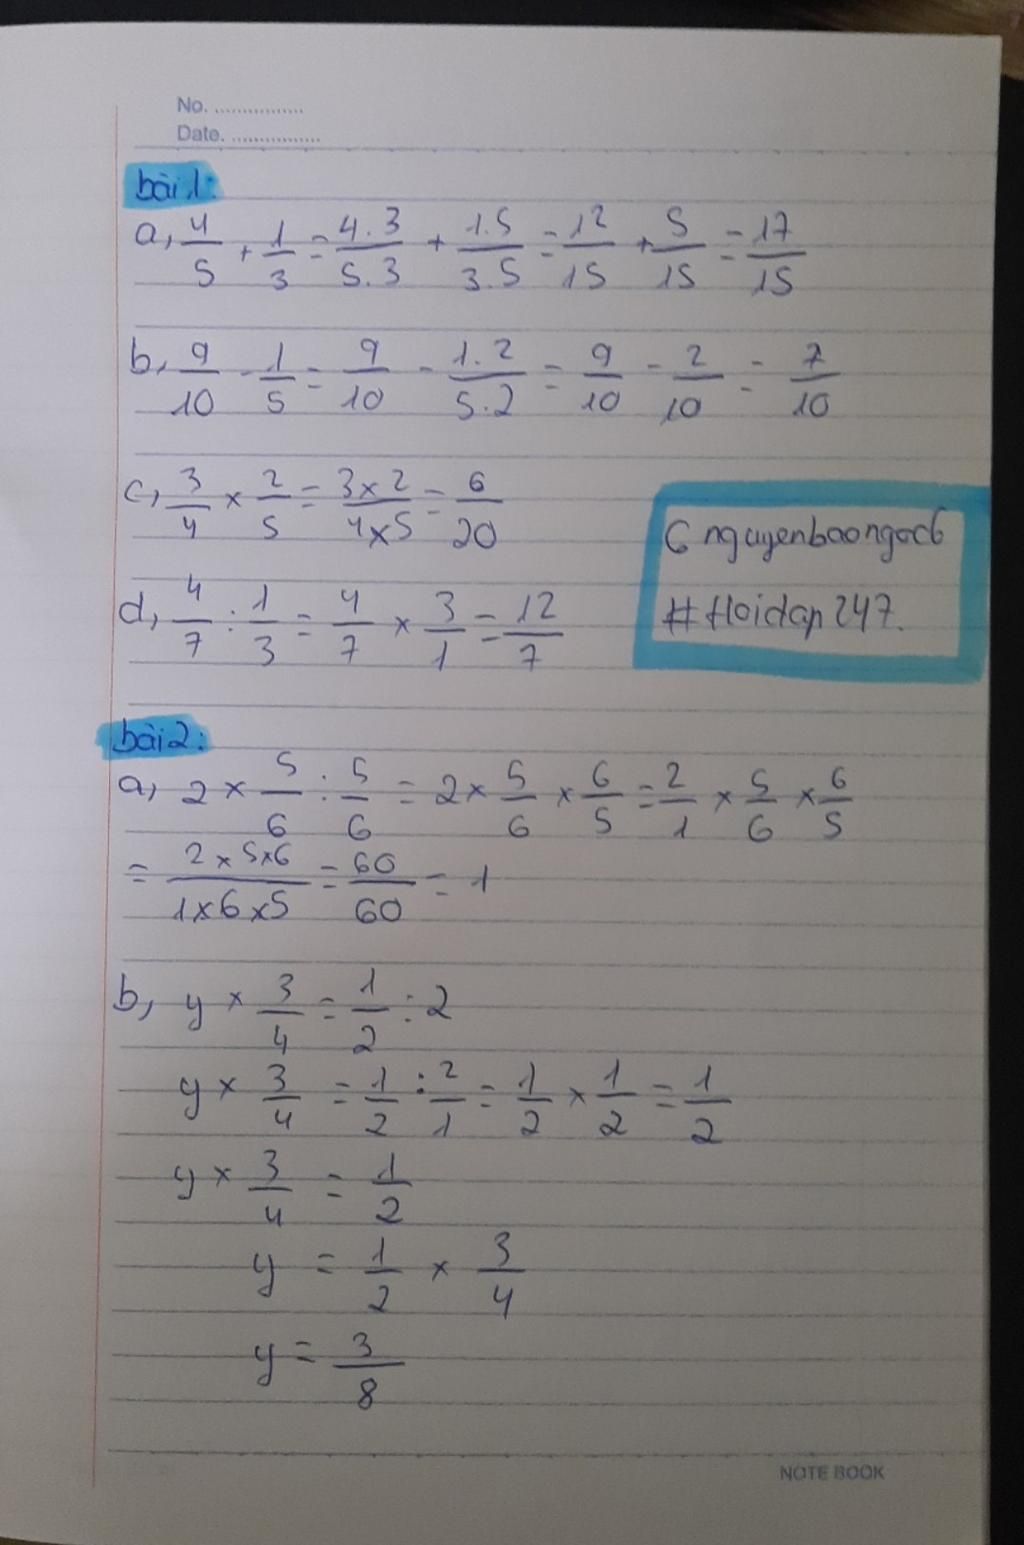 No. ................
Date. ................
bài 1:
a, 4/5 + 1/3 = 4.3/5.3 + 1.5/3.5 = 12/15 + 5/15 = 17/15
b, 9/10 - 1/5 = 9/10 - 1.2/5.2 = 9/10 - 2/10 = 7/10
c, 3/4 × 2/5 = 3×2/4×5 = 6/20
d, 4/7 : 1/3 = 4/7 × 3/1 = 12/7
nguyenbaongoc6
#Hoidap247.
bài 2:
a, 2 × 5/6 : 5/6 = 2 × 5/6 × 6/5 = 2/1 × 5/6 × 6/5
= 2×5×6/1×6×5 = 60/60 = 1
b, y × 3/4 = 1/2 : 2
y × 3/4 = 1/2 : 2/1 = 1/2 × 1/2 = 1/2
y × 3/4 = 1/2
y = 1/2 × 3/4
y = 3/8
NOTE BOOK